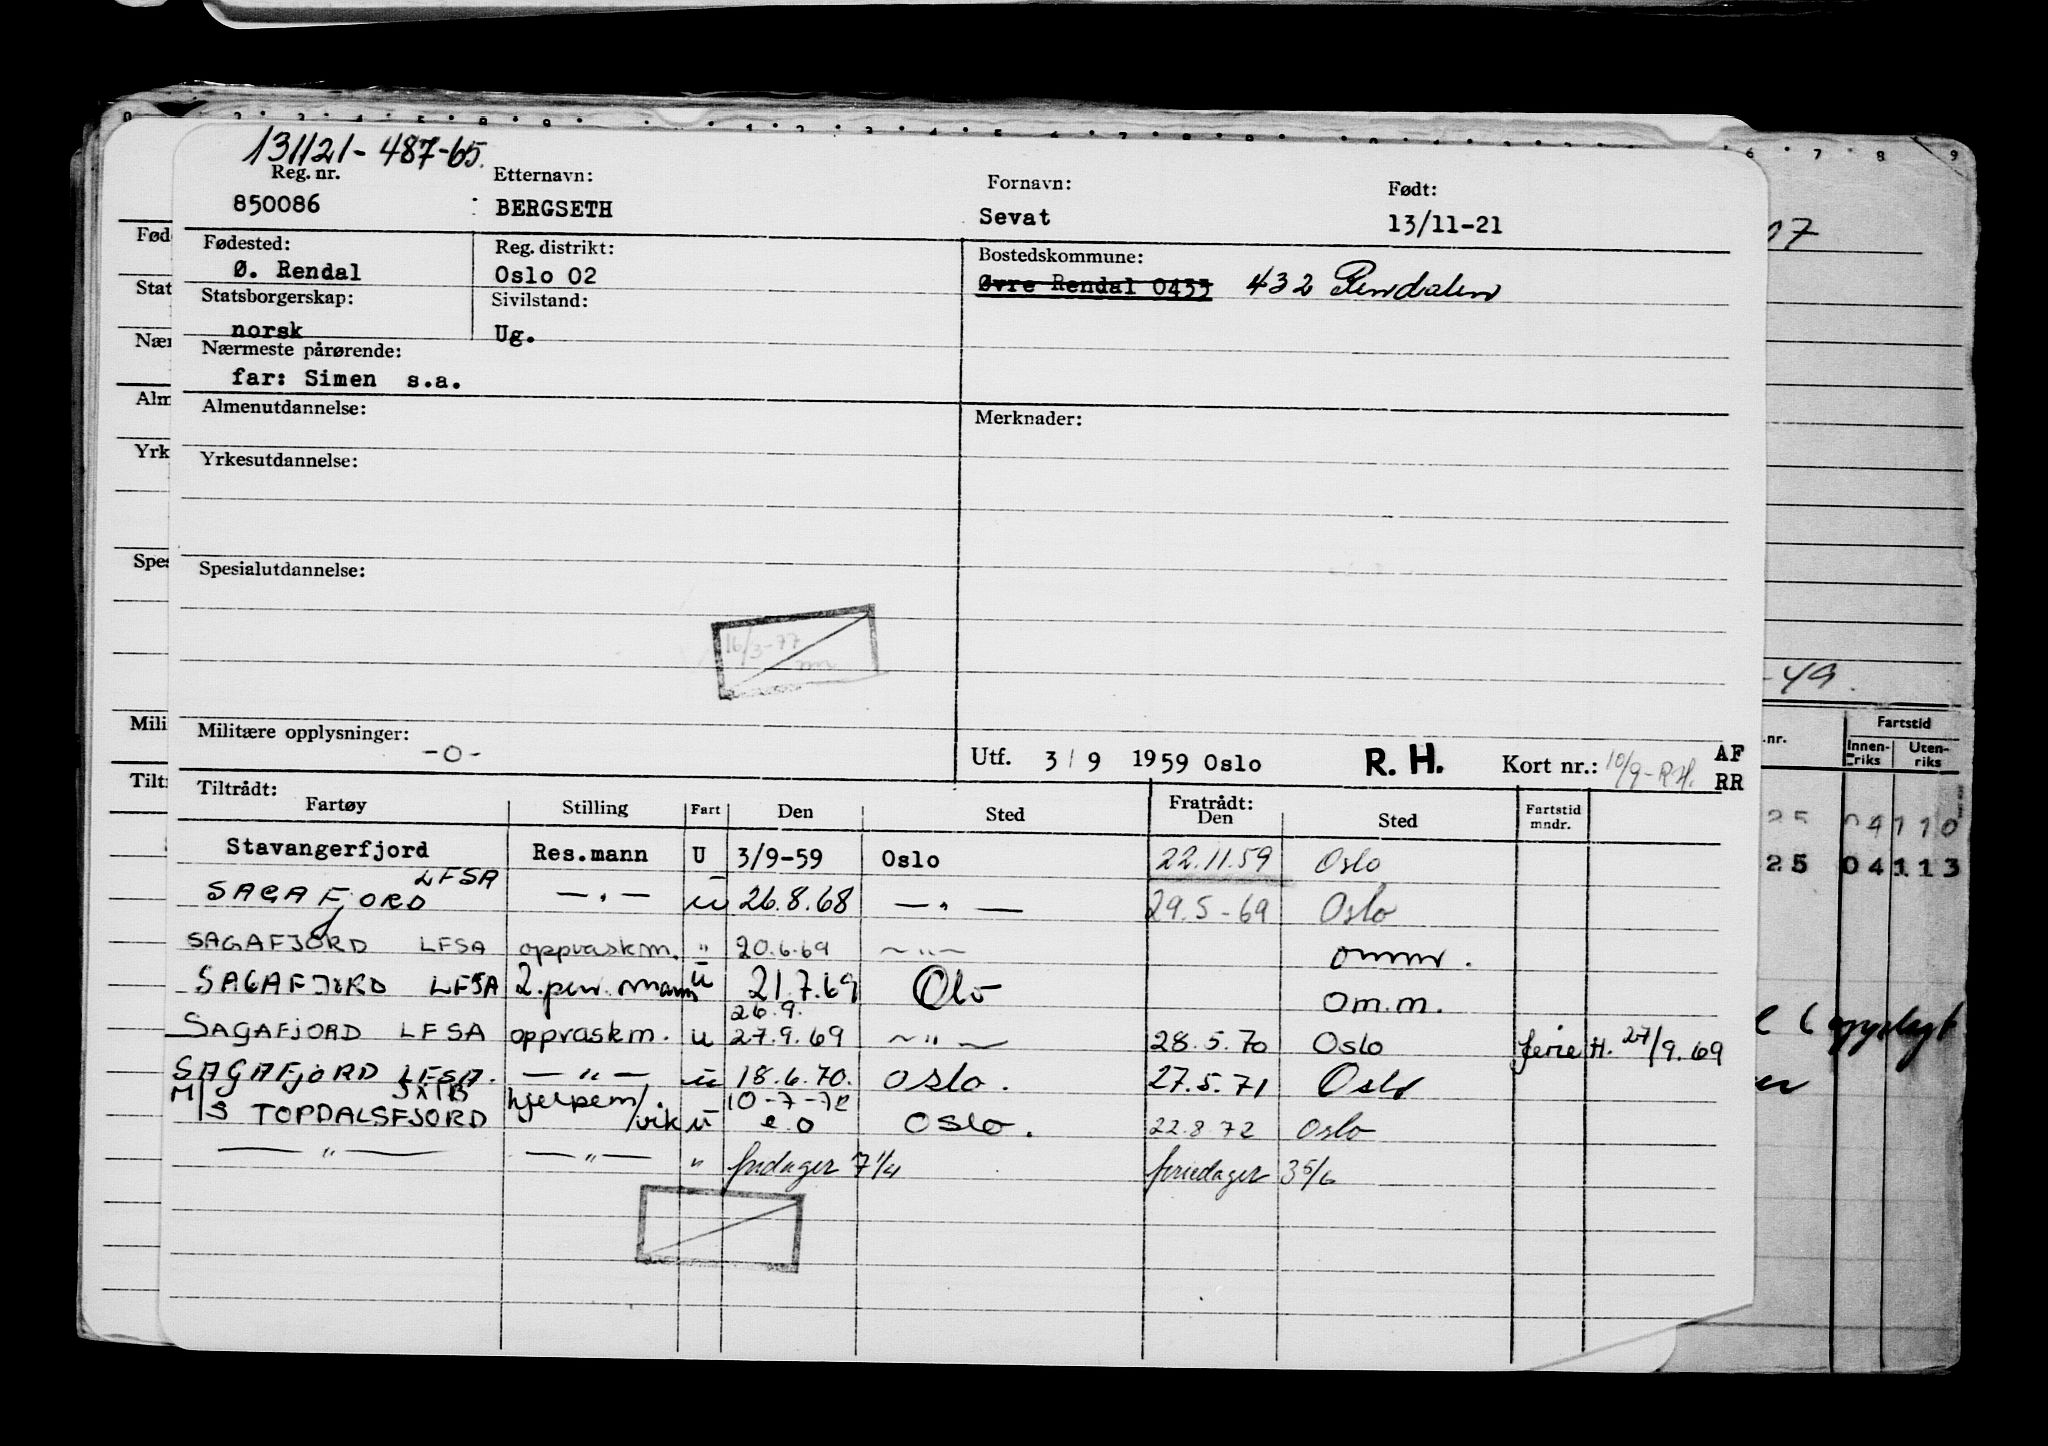 131121-487-65.
Reg. nr. Etternavn: Fornavn: Født:
850086 BERGSETH Sevat 13/11-21
Fødested: Reg. distrikt: Bostedskommune:
Ø. Rendal Oslo 02 Øvre Rendal 0433 432 Rendalen
Statsborgerskap: Sivilstand:
norsk Ug.
Nærmeste pårørende:
far: Simen s.a.
Almenutdannelse: Merknader:
Yrkesutdannelse:
Spesialutdannelse:
16/3-77
Militære opplysninger: -0-
Utf. 3/9 1959 Oslo R. H. Kort nr.: 10/9-RH. AF RR
Tiltrådt: Fratrådt:
Fartøy Stilling Fart Den Sted Den Sted Fartstid mndr.
Stavangerfjord Res.mann U 3/9-59 Oslo 22.11.59 Oslo
SAGAFJORD LFSA — " — u 26.8.68 — " — 29.5-69 Oslo
SAGAFJORD LFSA oppvaskm. " 20.6.69 — " — ommm.
SAGAFJORD LFSA 2. pen. mann u 21.7.69 Olo om.m.
26.9.
SAGAFJORD LFSA oppvaskm. u 27.9.69 — " — 28.5.70 Oslo ferie t. 27/9.69
SAGAFJORD LFSA. — " — u 18.6.70. Oslo. 27.5.71 Oslo
M/S TOPDALSFJORD hjelpem/vik u 10-7-72 e.o Oslo. 22.8.72 Oslo
— " — — " — " fridager 7 1/4 feriedager 3 5/6
07
-49.
.nr. Fartstid
Innen-riks Uten-riks
25 04 110
25 04 113
Fød
Stat
Nær
Alm
Yrk
Spes
Mili
Tiltr